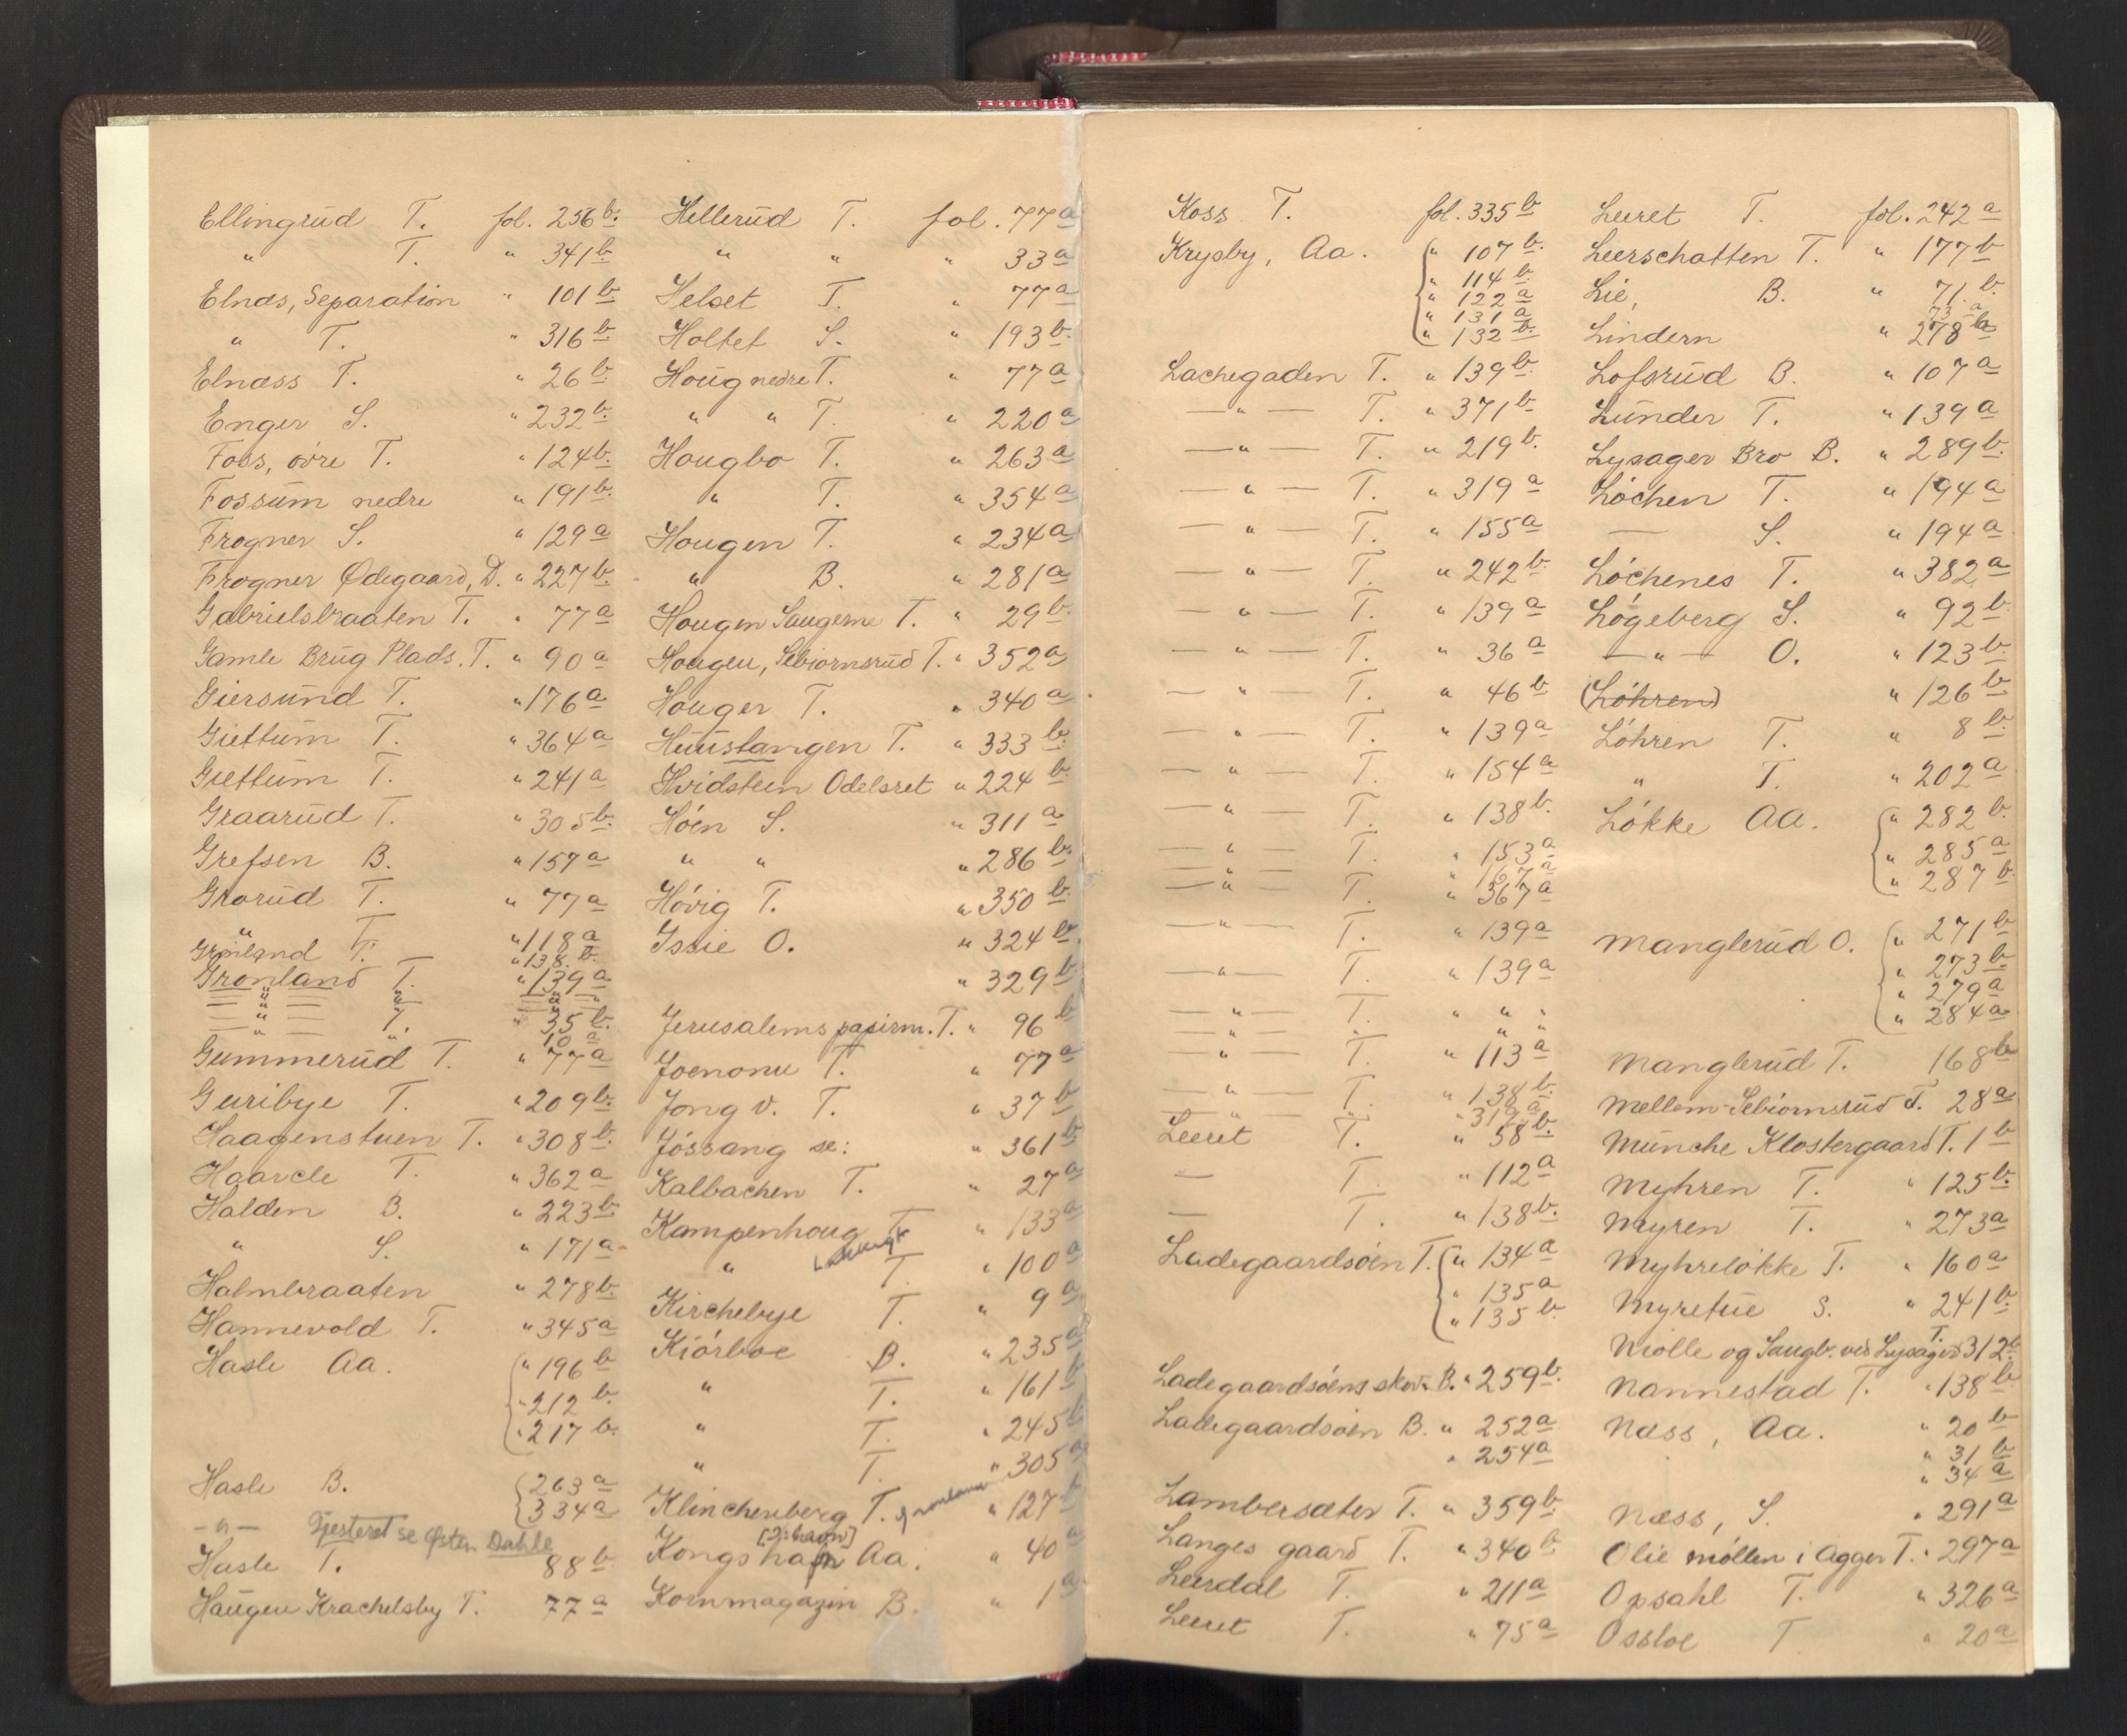 Ellingrud T. fol. 256 b.
" T. " 341 b
Elnæs, Separation " 101 b.
" T. " 316 b
Elnæss T. " 26 b.
Enger S. " 232 b.
Foss, øvre T. " 124 b.
Fossum nedre " 191 b.
Frogner S. " 129 a
Frogner Ødegaard, D. " 227 b.
Gabrielsbraaten T. " 77 a
Gamle Brug Plads. T. " 90 a
Giersund T. " 176 a
Giettum T. " 364 a
Giettum T. " 241 a
Graarud T. " 305 b.
Grefsen B. " 157 a
Grorud T. " 77 a
" T. " 118 a
Grønland T. " 138. b.
Grønland T. " 139 a
— " — " — " —
— " — T. " 35 b.
" " 10 a
Gummerud T. " 77 a
Guribye T. " 209 b.
Haagenstuen T. " 308 b.
Haarcle T. " 362 a
Halden B. " 223 b
" S. " 171 a
Halmbraaten " 278 b.
Hannevold T. " 345 a
Hasle Aa. " 196 b
" 212 b.
" 217 b.
Hasle B. 263 a
334 a
— " — Tjesteret se Østen Dahle
Hasle T. 88 b
Haugen Krachelsby T. 77 a
Hellerud T. fol. 77 a
" " " 33 a
Helset T. " 77 a
Holtet S. " 193 b.
Houg nedre T. " 77 a
" " T. " 220 a
Hougbo T. " 263 a
" T. " 354 a
Hougen T. " 234 a
" B. " 281 a
Hougen Saugerne T. " 29 b.
Hougen, Sebiornsrud T. " 352 a
Houger T. " 340 a
Huustangen T. " 333 b.
Hvidsteen Odelsret " 224 b
Höen S. " 311 a
" " " 286 b.
Hövig T. " 350 b.
Issie O. " 324 b.
" 329 b
Jerusalems papirm. T. " 96 b
Joenonu T. " 77 a
Jong v. T. " 37 b
Jössang se: " 361 b
Kalbachen T. " 27 a
Kampenhoug T. " 133 a
" T. " 100 a
Kirchebye T. " 9 a
Kiörboe B. " 235 a
" T. " 161 b
" T. " 245 b
" T. " 305 a
Klinchenberg T. grønland " 127 b
[ɔ: havn]
Kongshafn Aa. " 40 a
Kornmagazin B. " 1 a
Koss T. fol. 335 b
Krysby, Aa. " 107 b.
" 114 b.
" 122 a
" 131 a
" 132 b.
Lachegaden T. " 139 b.
— " — T. " 371 b
— " — T. " 219 b.
— " — T. " 319 a
— " — T. " 155 a
— " — T. " 242 b.
— " — T. " 139 a
— " — T. " 36 a
— " — T. " 46 b
— " — T. " 139 a
— " — T. " 154 a
— " — T. " 138 b.
— " — T. " 153 a
" 167 a
— " — T. " 367 a
— " — T. " 139 a
— " — T. " 139 a
— " — T. " " "
— " — " " "
— " — T. " 113 a
— " — T. " 138 b.
— " — " " 319 a
Leeret T. " 58 b.
— T. " 112 a
— T. " 138 b.
Ladegaardsöen T. " 134 a
" 135 a
" 135 b.
Ladegaardsöens skov. B. " 259 b.
Ladegaardsöen B. " 252 a
" 254 a
Lambersæter T. " 359 b.
Langes gaard T. " 340 b
Leerdal T. " 211 a
Leeret T. " 75 a
Leeret T. fol. 242 a
Leerschatten T. " 177 b
Lie, B. " 71. b.
73 a
Lindern " 278 b
Lofsrud B. " 107 a
Lunder T. " 139 a
Lysager Bro B. " 289 b.
Löchen T. " 194 a
— S. " 194 a
Löchenes T. " 382 a
Lögeberg S. " 92 b.
— " — O. " 123 b.
(Löhren) " 126 b
Löhren T. " 8 b.
" T. " 202 a
Lökke Aa. " 282 b.
" 285 a
" 287 b.
Manglerud O. " 271 b
" 273 b
" 279 a
" 284 a
Manglerud T. 168 b
Mellem-Sebiornsrud T. 28 a
Munche Klostergaard T. 1 b
Myhren T. " 125 b.
Myren T. " 273 a
Myhrelökke T. " 160 a
Myretue S. " 241 b.
Mölle og Saugb. ved Lysager T. 312 b
Nannestad T. " 138 b
Næss, Aa. " 20 b
" 31 b
" 34 a
Næss, S. " 291 a
Olie möllen i Agger T. " 297 a
Opsahl T. " 326 a
Osstoe T " 20 a